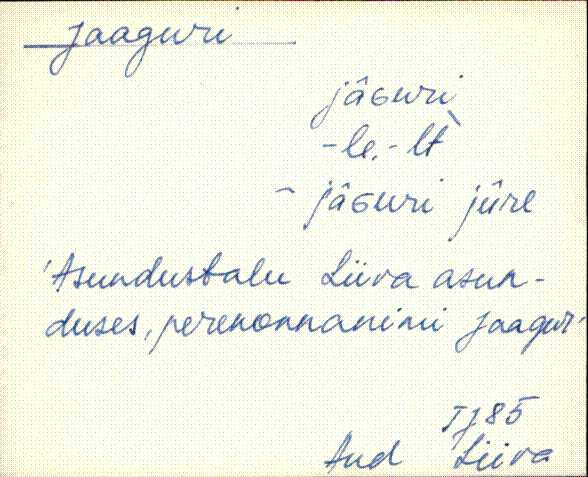 Jaaguri
jâGuri
-le, -lt
~ jâGuri jûre
'Asundustalu Liiva asun-
duses, perekonnanimi Jaagur'
TJ 85
Aud Liiva